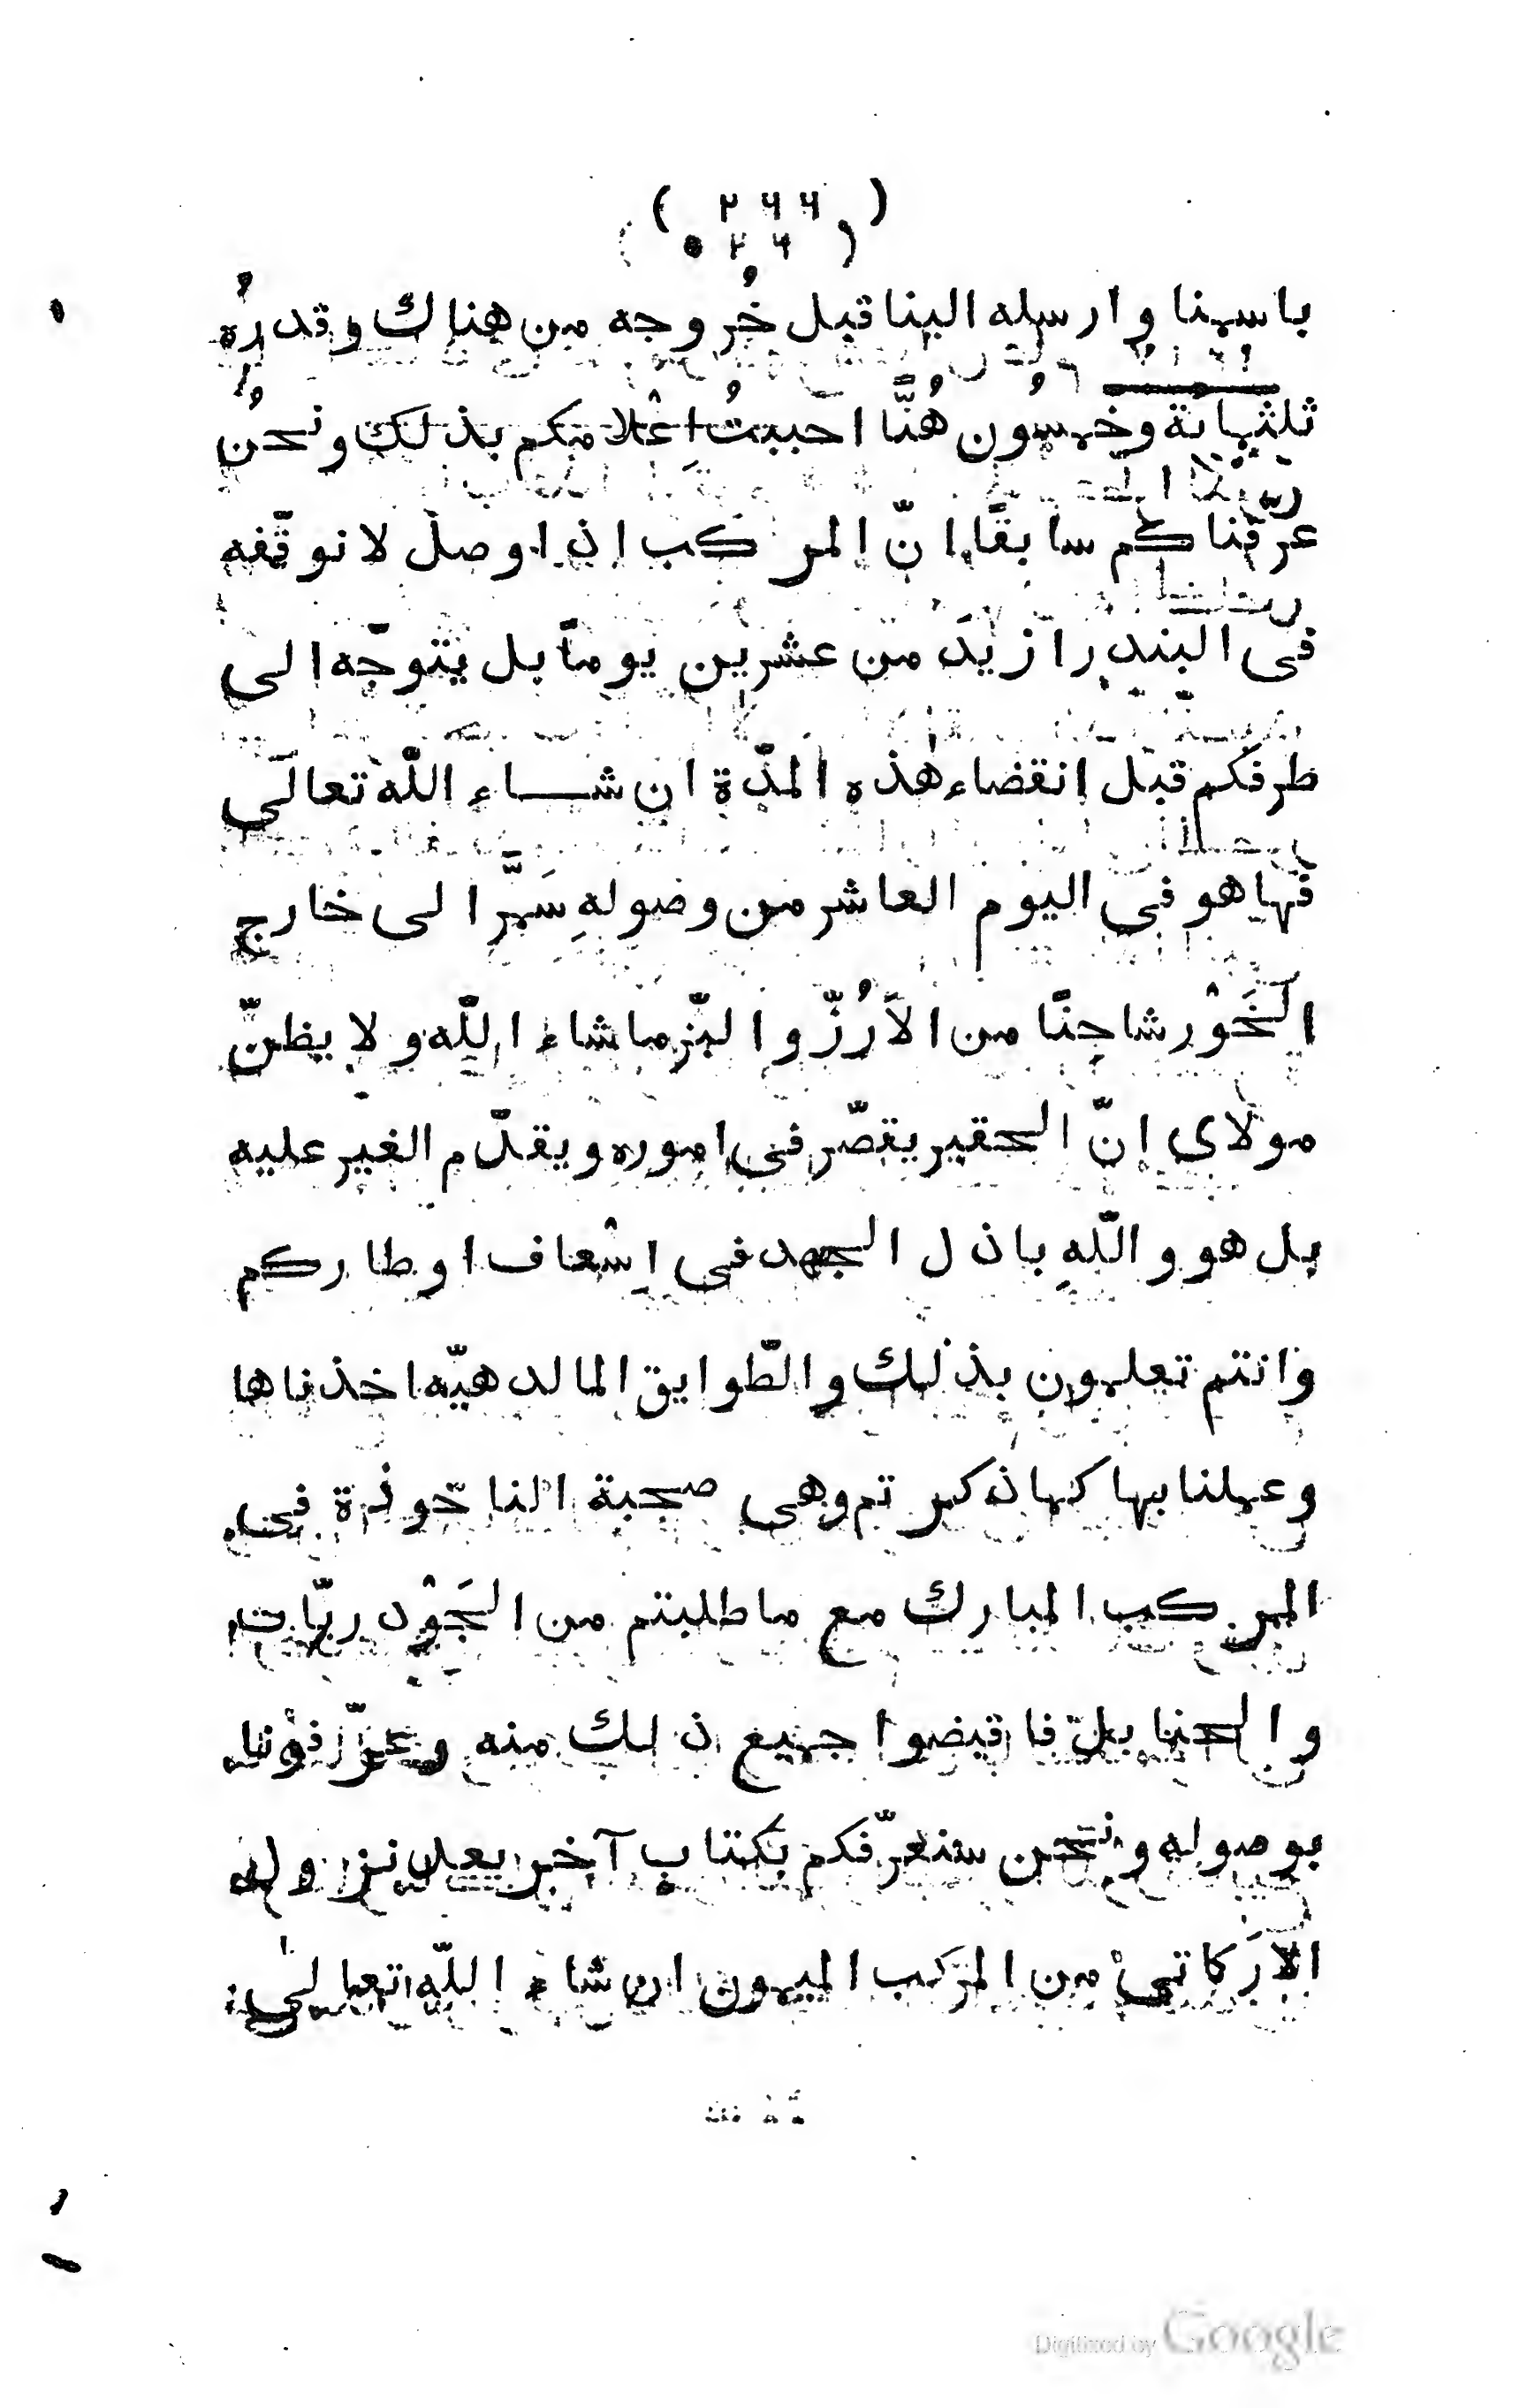 ( ٢٦٦ )
باسمنا وارسله الينا قبل خُروجه من هناك وقدرُه
ثلثمائة وخمسُون هُنًّا احببتُ اعْلامكم بذلك ونحنُ
عرّفناكم سابقًا انّ المركب اذا وصل لا نوقّفه
فى البندر ازيدَ من عشرين يومًا بل يتوجّه الى
طرفكم قبل انقضاء هٰذه المدّة ان شاء اللّه تعالى
فها هو فى اليوم العاشر من وصولهِ سَمَّر الى خارج
الخَوْر شاحنًا من الأَرُزّ والبّز ما شاء اللّه ولا يظنّ
مولاى انّ الحقير يقصّر فى اموره ويقدّم الغير عليه
بل هو واللّهِ باذل الجهد فى اِسْعاف اوطاركم
وانتم تعلمون بذلك والطّوايق المالدهيّه اخذناها
وعملنا بها كما ذكرتم وهى صحبة الناخوذة فى
المركب المبارك مع ما طلبتم من الجَوْدريّات
والحنابل فاقبضوا جميع ذلك منه وعرّفونا
بوصوله ونحن سنعرّفكم بكتاب آخر بعد نزول
الاَركاتىْ من المركب الميمون ان شاء اللّه تعالى
Digitized by Google